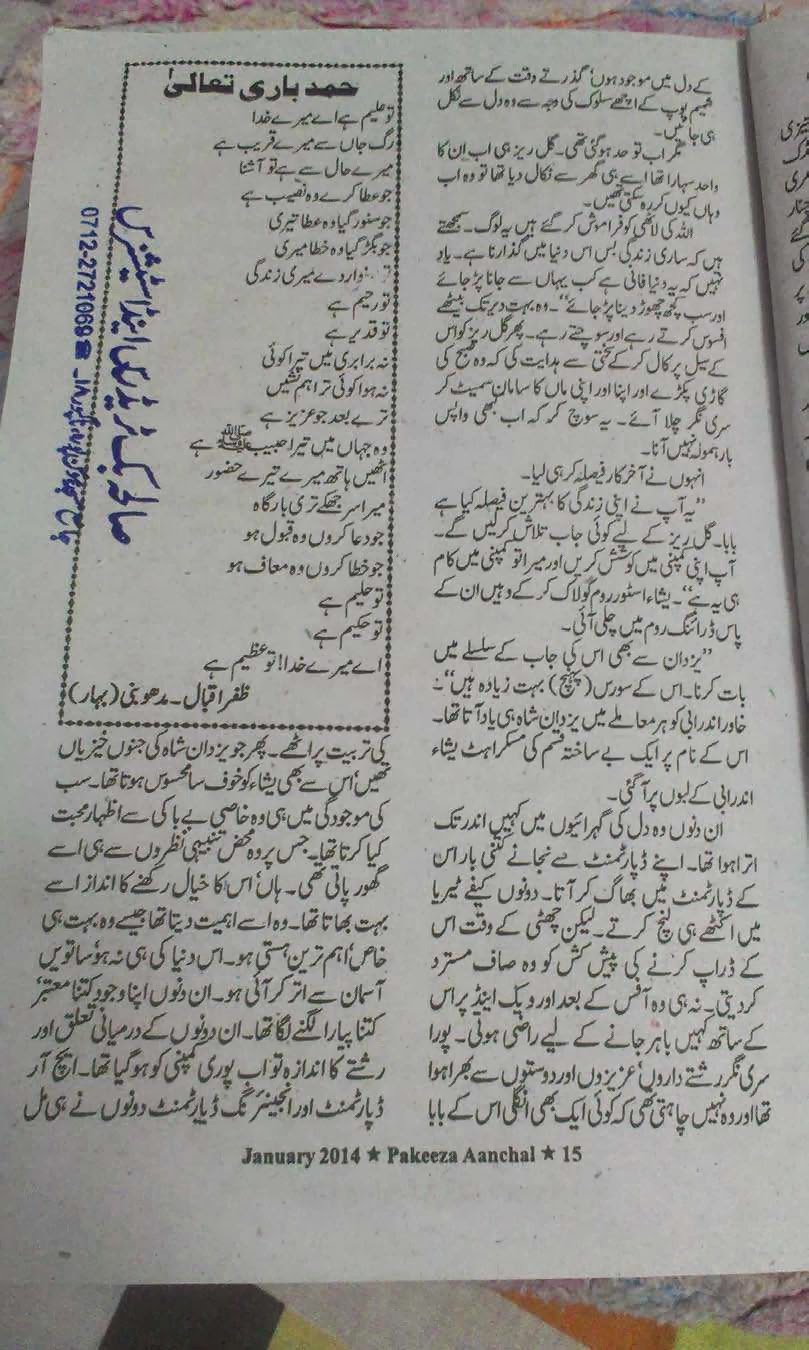 کے دل میں موجود ہوں‘ گذرتے وقت کے ساتھ اور
شمیم پوپ کے اچھے سلوک کی وجہ سے وہ دل سے نکل
ہی جائیں۔
مگر اب تو حد ہوگئی تھی۔ گل ریز ہی اب ان کا
واحد سہارا تھا اسے ہی گھر سے نکال دیا تھا تو وہ اب
وہاں کیوں کر رہ سکتی تھیں۔
اللہ کی لاٹھی کو فراموش کر گئے ہیں یہ لوگ۔ سمجھتے
ہیں کہ ساری زندگی بس اس دنیا میں گذارنا ہے۔ یاد
نہیں کہ یہ دنیا فانی ہے کب یہاں سے جانا پڑ جائے
اور سب کچھ چھوڑ دینا پڑ جائے‘‘۔ وہ بہت دیر تک بیٹھے
افسوس کرتے رہے اور سوچتے رہے۔ پھر گل ریز کو اس
کے سیل پر کال کر کے سختی سے ہدایت کی کہ وہ صبح کی
گاڑی پکڑے اور اپنا اور اپنی ماں کا سامان سمیٹ کر
سری نگر چلا آئے۔ یہ سوچ کر کہ اب کبھی واپس
بارہمولہ نہیں آنا۔
انہوں نے آخر کار فیصلہ کر ہی لیا۔
’’یہ آپ نے اپنی زندگی کا بہترین فیصلہ کیا ہے
بابا۔ گل ریز کے لیے کوئی جاب تلاش کر لیں گے۔
آپ اپنی کمپنی میں کوشش کریں اور میرا تو کمپنی میں کام
ہی یہ ہے‘‘۔ یشاء اسٹور روم کو لاک کر کے وہیں ان کے
پاس ڈرائنگ روم میں چلی آئی۔
’’یزدان سے بھی اس کی جاب کے سلسلے میں
بات کرنا۔ اس کے سورس (پہنچ) بہت زیادہ ہیں‘‘۔
خاور اندرابی کو ہر معاملے میں یزدان شاہ ہی یاد آتا تھا۔
اس کے نام پر ایک بے ساختہ قسم کی مسکراہٹ یشاء
اندرابی کے لبوں پر آ گئی۔
ان دنوں وہ دل کی گہرائیوں میں کہیں اندر تک
اترا ہوا تھا۔ اپنے ڈپارٹمنٹ سے نجانے کتنی بار اس
کے ڈپارٹمنٹ میں بھاگ کر آتا۔ دونوں کیفے ٹیریا
میں اکٹھے ہی لنچ کرتے۔ لیکن چھٹی کے وقت اس
کے ڈراپ کرنے کی پیش کش کو وہ صاف مسترد
کر دیتی۔ نہ ہی وہ آفس کے بعد اور ویک اینڈ پر اس
کے ساتھ کہیں باہر جانے کے لیے راضی ہوتی۔ پورا
سری نگر رشتے داروں‘ عزیزوں اور دوستوں سے بھرا ہوا
تھا اور وہ نہیں چاہتی تھی کہ کوئی ایک بھی انگلی اس کے بابا
حمد باری تعالیٰ
تو علیم ہے اے میرے خدا
رگ جاں سے میرے قریب ہے
میرے حال سے ہے تو آشنا
جو عطا کرے وہ نصیب ہے
جو سنور گیا وہ عطا تیری
جو بگڑ گیا وہ خطا میری
وار دے میری زندگی
تو رحیم ہے
تو قدیر ہے
نہ برابری میں تیرا کوئی
نہ ہوا کوئی ترا ہم نشیں
ترے بعد جو عزیز ہے
وہ جہاں میں تیرا حبیب ﷺ ہے
اٹھیں ہاتھ میرے تیرے حضور
میرا سر جھکے تری بارگاہ
جو دعا کروں وہ قبول ہو
جو خطا کروں وہ معاف ہو
تو حلیم ہے
تو حکیم ہے
اے میرے خدا! تو عظیم ہے
ظفر اقبال۔ مدھوبنی (بہار)
صالحہ بک ٹریڈرس اینڈ اسٹیشنرس
0712-2721069 ☎
کی تربیت پر اٹھے۔ پھر جو یزدان شاہ کی جنوں خیزیاں
تھیں‘ اس سے بھی یشاء کو خوف سا محسوس ہوتا تھا۔ سب
کی موجودگی میں ہی وہ خاصی بے باکی سے اظہار محبت
کیا کرتا تھا۔ جس پر وہ محض تنبیہی نظروں سے ہی اسے
گھور پاتی تھی۔ ہاں‘ اس کا خیال رکھنے کا انداز اسے
بہت بھاتا تھا۔ وہ اسے اہمیت دیتا تھا جیسے وہ بہت ہی
خاص‘ اہم ترین ہستی ہو۔ اس دنیا کی ہی نہ ہو‘ ساتویں
آسمان سے اتر کر آئی ہو۔ ان دنوں اپنا وجود کتنا معتبر‘
کتنا پیارا لگنے لگا تھا۔ ان دونوں کے درمیانی تعلق اور
رشتے کا اندازہ تو اب پوری کمپنی کو ہو گیا تھا۔ ایچ آر
ڈپارٹمنٹ اور انجینئرنگ ڈپارٹمنٹ دونوں نے ہی مل
January 2014 ★ Pakeeza Aanchal ★ 15